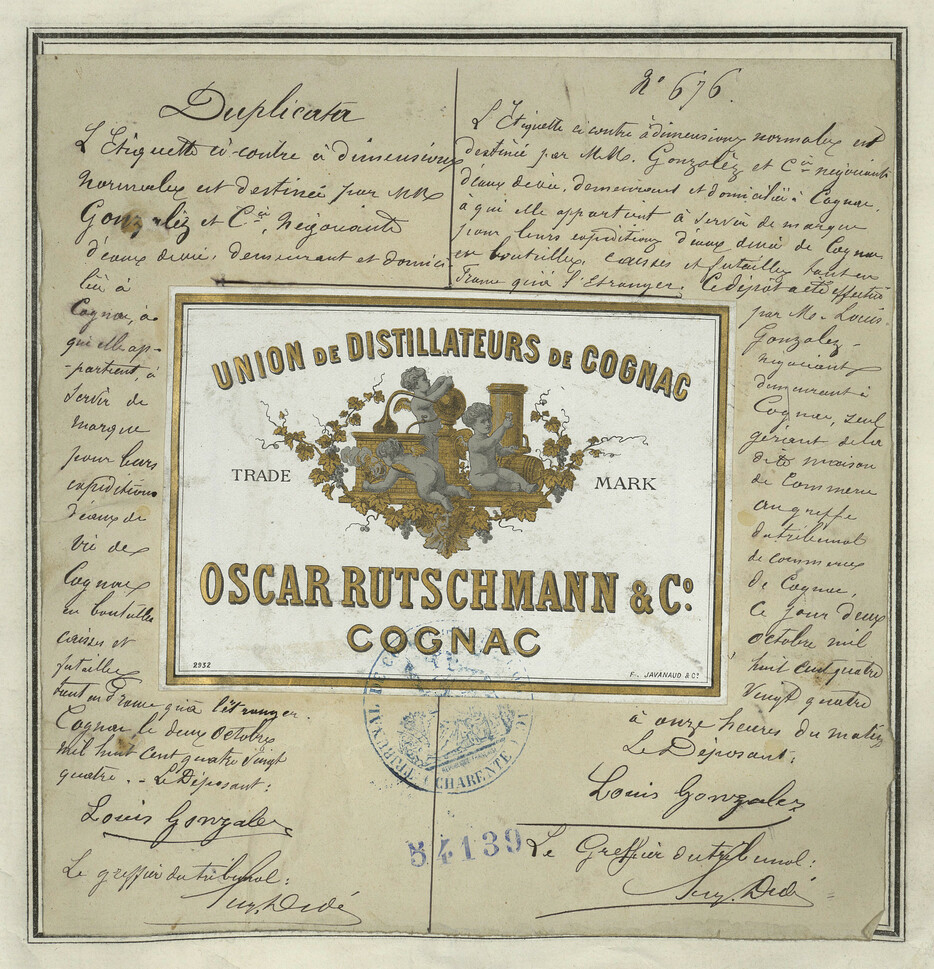 Duplicata
L'Etiquette ci-contre à dimensions
normales est destinée par MM
Gonzalèz et Cie, Négociants
d'eaux de vie, demeurant et domici
liés à
Cognac, à
qui elle ap-
-partient, à
servir de
marque
pour leurs
expéditions
d'eaux de
vie de
Cognac
en bouteilles
caisses et
futailles
tant en France qu'à l'étranger.
Cognac, le deux Octobre
mil huit cent quatre vingt
quatre. - Le Déposant:
Louis Gonzalez
Le greffier du tribunal:
No 676.
L'Etiquette ci contre à dimensions normales est
destinée par MM. Gonzalèz et Cie négociants
d'eaux de vie, demeurant et domiciliés à Cognac,
à qui elle appartient à servir de marque
pour leurs expéditions d'eaux de vie de Cognac
en bouteilles, caisses et futailles tant en
France qu'à l'Etranger. Ce dépôt a été effectué
par Mr. Louis
Gonzalez-
négociant
demeurant à
Cognac, seul
gérant de la
dite maison
de Commerce
au greffe
du tribunal
de commerce
de Cognac,
ce jour deux
octobre mil
huit cent quatre
vingt quatre
à onze heures du matin
Le Déposant:
Louis Gonzalez
Le Greffier du tribunal:
UNION DE DISTILLATEURS DE COGNAC
TRADE MARK
OSCAR RUTSCHMANN & Co.
COGNAC
2932
F. JAVANAUD & Co
CHARENTE
54139